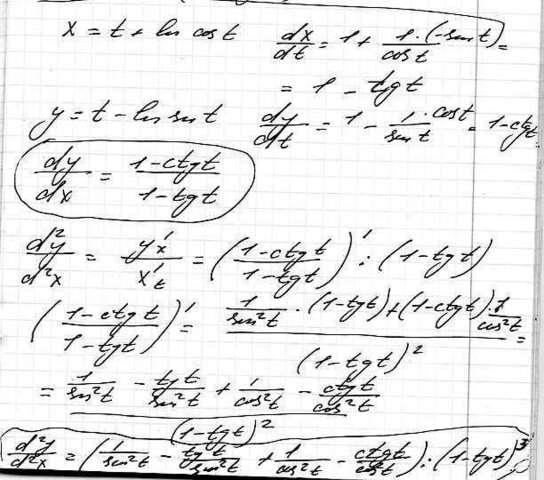 x = t + ln cos t    dx/dt = 1 + 1·(-sin t)/cos t =
= 1 - tg t
y = t - ln sin t    dy/dt = 1 - 1/sin t · cos t = 1 - ctg t
dy/dx = (1 - ctg t)/(1 - tg t)
d²y/d²x = y'x/x't = ((1 - ctg t)/(1 - tg t))' : (1 - tg t)
((1 - ctg t)/(1 - tg t))' = (1/sin²t · (1 - tg t) + (1 - ctg t) · 1/cos²t)/(1 - tg t)² =
= (1/sin²t - tg t/sin²t + 1/cos²t - ctg t/cos²t)/(1 - tg t)²
d²y/d²x = (1/sin²t - tg t/sin²t + 1/cos²t - ctg t/cos²t) : (1 - tg t)³